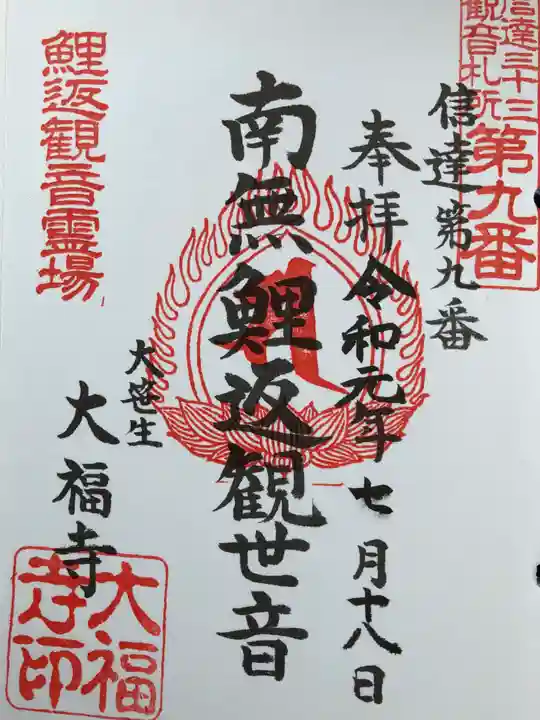 信達三十三
観音札所
第九番
信達第九番
奉拝令和元年七月十八日
南無鯉返観世音
大笹生
大福寺
鯉返観音霊場
大福
寺印